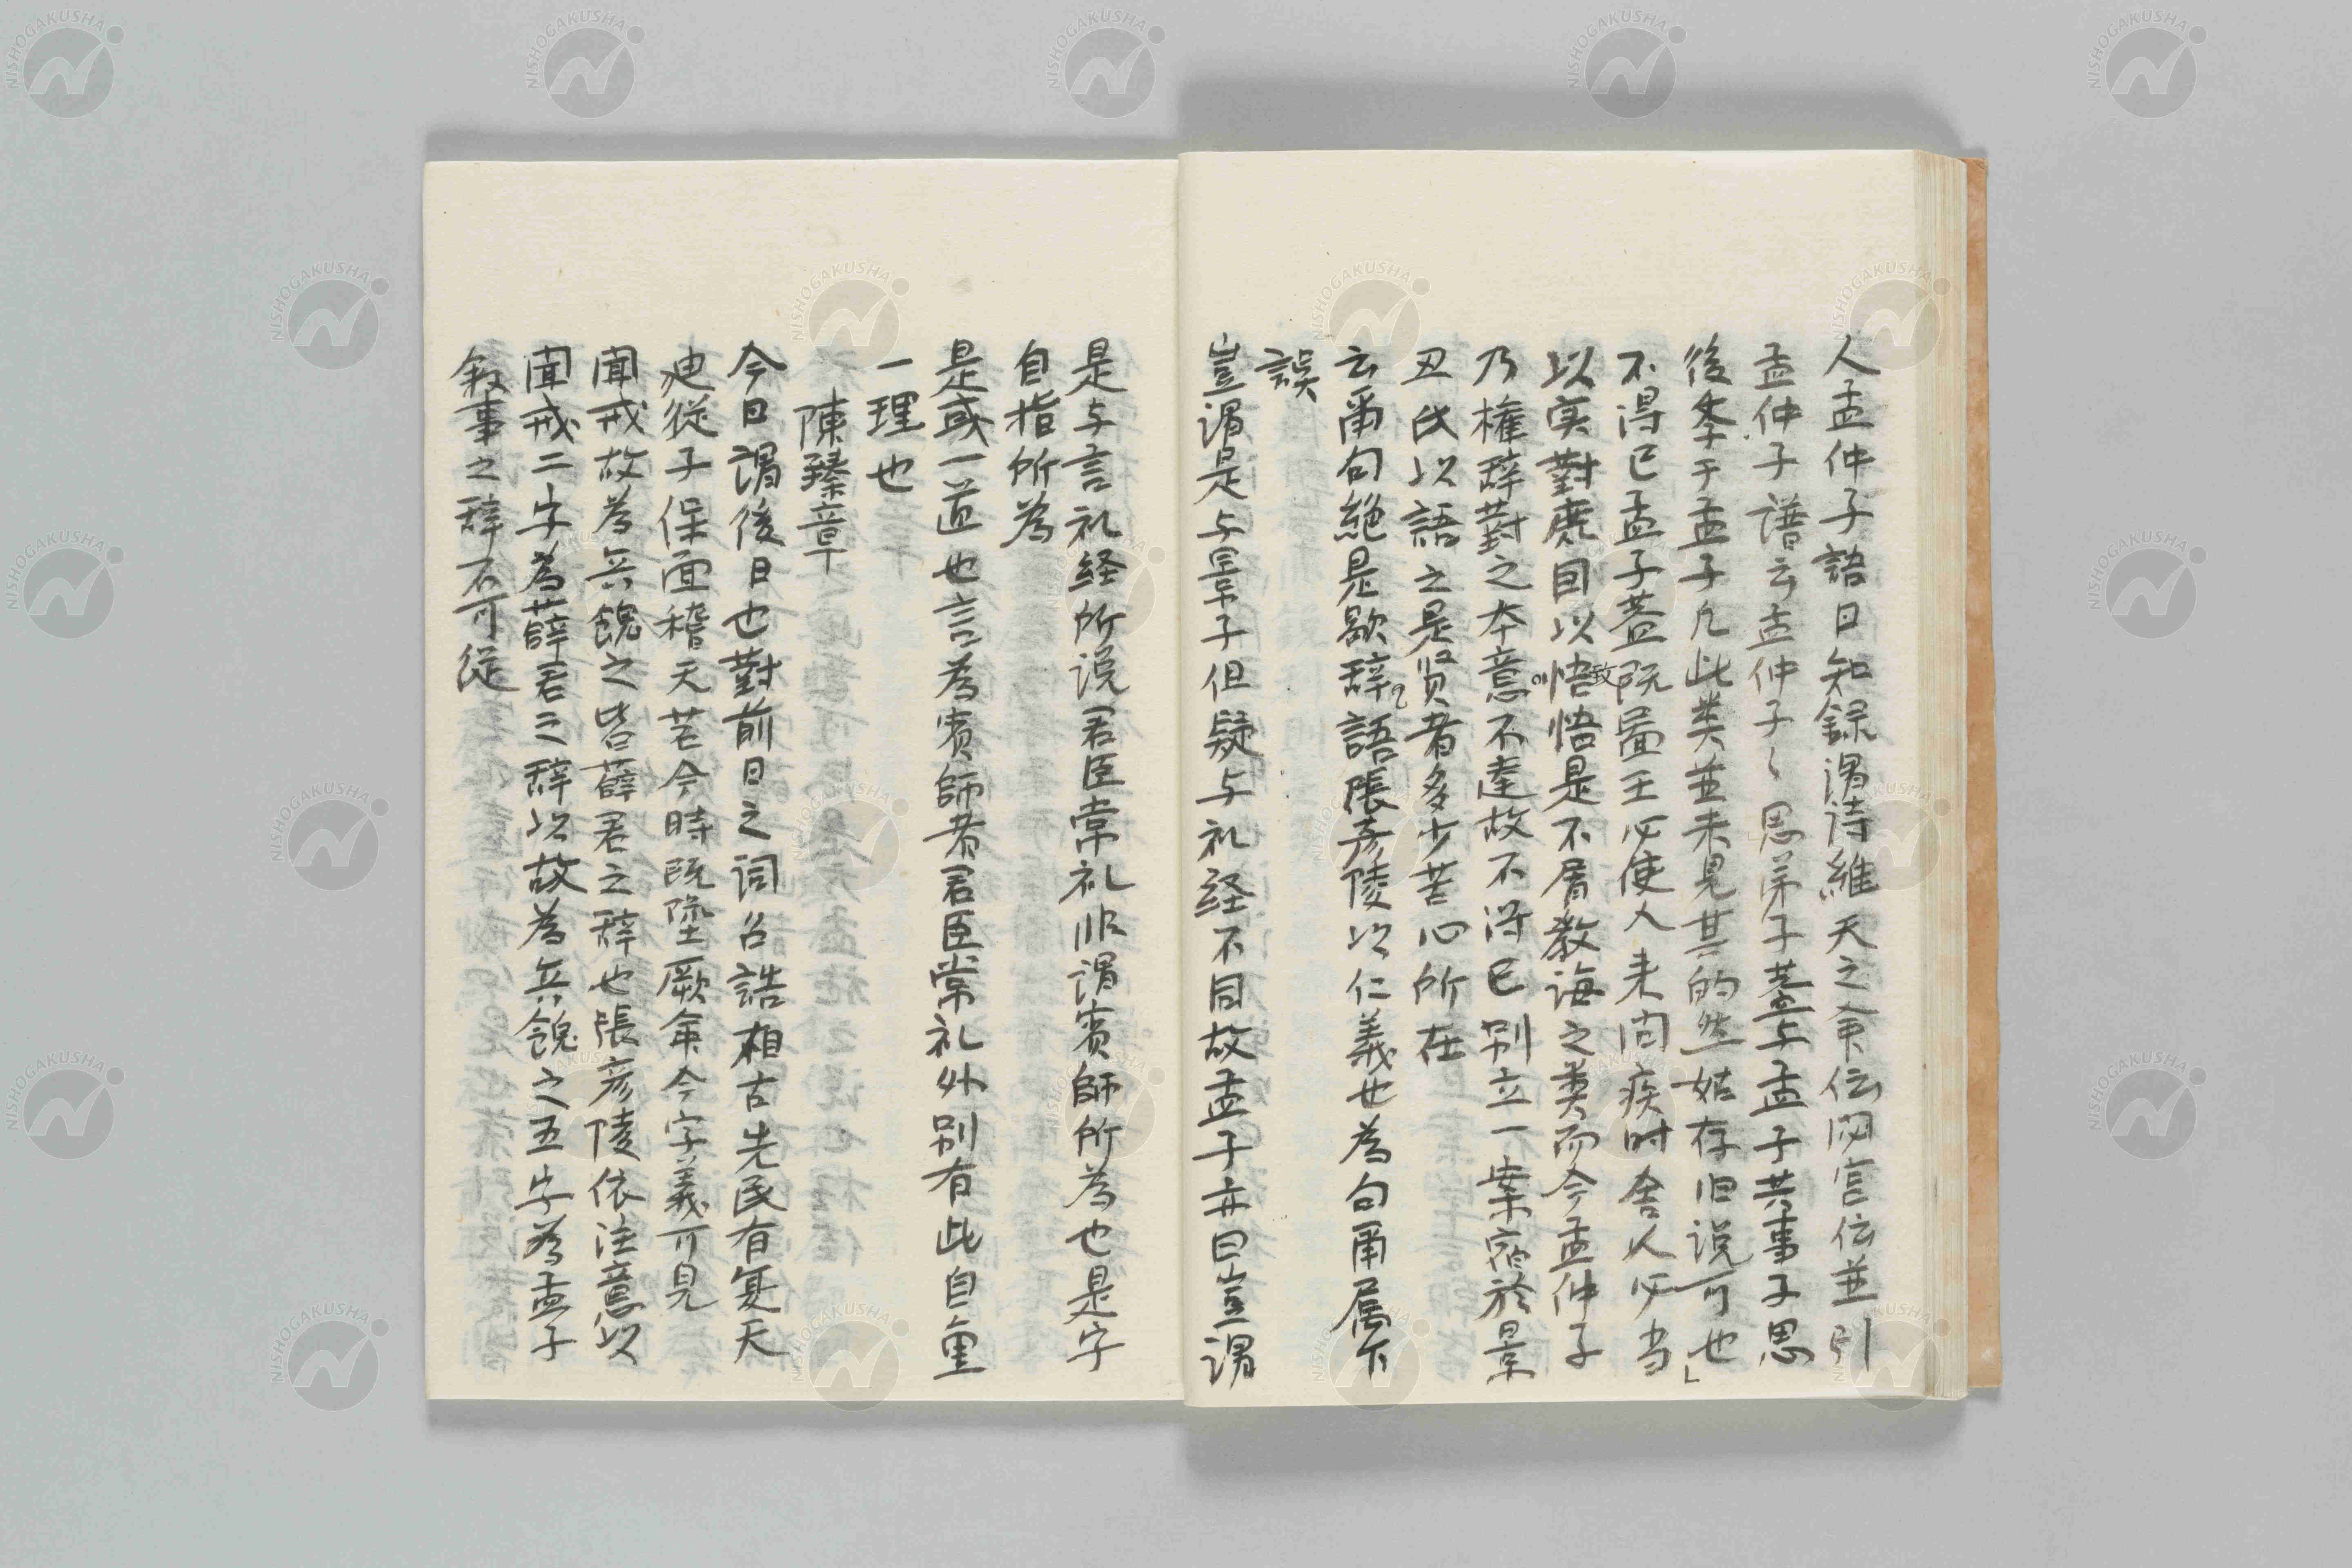 人孟仲子語日知録謂詩維天之命伝閟宮伝並引
孟仲子譜云孟仲子〻思弟子蓋与孟子共事子思
後季于孟子凡此类並未見其的然姑存旧说可也」
不得已孟子蓋既啚王必使人来问疾时舍人必当
以实對庶因以致悟悟是不屑教诲之类而今孟仲子
乃權辞對之夲意不達故不得已别立一案宿於景
丑氏以語之是贤者多少苦心所在
云爾句絶是歇辞語張彦陵以仁義也為句爾属下
誤
豈謂是与景子但疑与礼经不同故孟子亦曰豈謂
是与言礼经所说君臣常礼非謂賓師所為也是字
自指所為
是或一道也言為賓師者君臣常礼外别有此自重
一理也
陳臻章
今日謂後日也對前日之词召誥相古先民有夏天
迪從子保面稽天若今時既墜厥命今字義可見
聞戒故為兵餽之皆薛君之辞也張彦陵依注意以
聞戒二字為薛君之辞以故為兵餽之五字為孟子
叙事之辞不可從
NISHOGAKUSHA